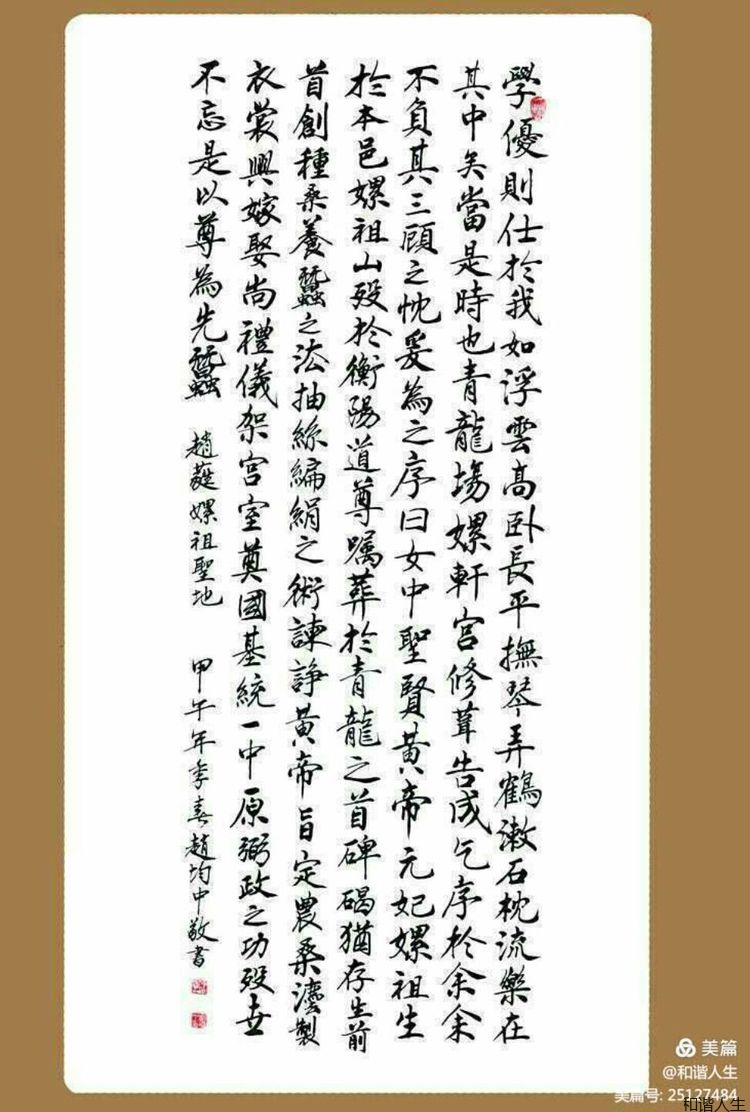 學優則仕於我如浮雲高卧長平撫琴弄鶴漱石枕流樂在
其中矣當是時也青龍場嫘軒宮修葺告成乞序於余余
不負其三顧之忱爰為之序曰女中聖賢黃帝元妃嫘祖生
於本邑嫘祖山歿於衡陽道尊囑葬於青龍之首碑碣猶存生前
首創種桑養蠶之法抽絲編絹之術諫諍黃帝旨定農桑濾製
衣裳興嫁娶尚禮儀架宮室奠國基統一中原弼政之功歿世
不忘是以尊為先蠶 趙蕤嫘祖聖地 甲午年季春趙均中敬書
美篇
@和谐人生
美篇号: 25127484
和谐人生